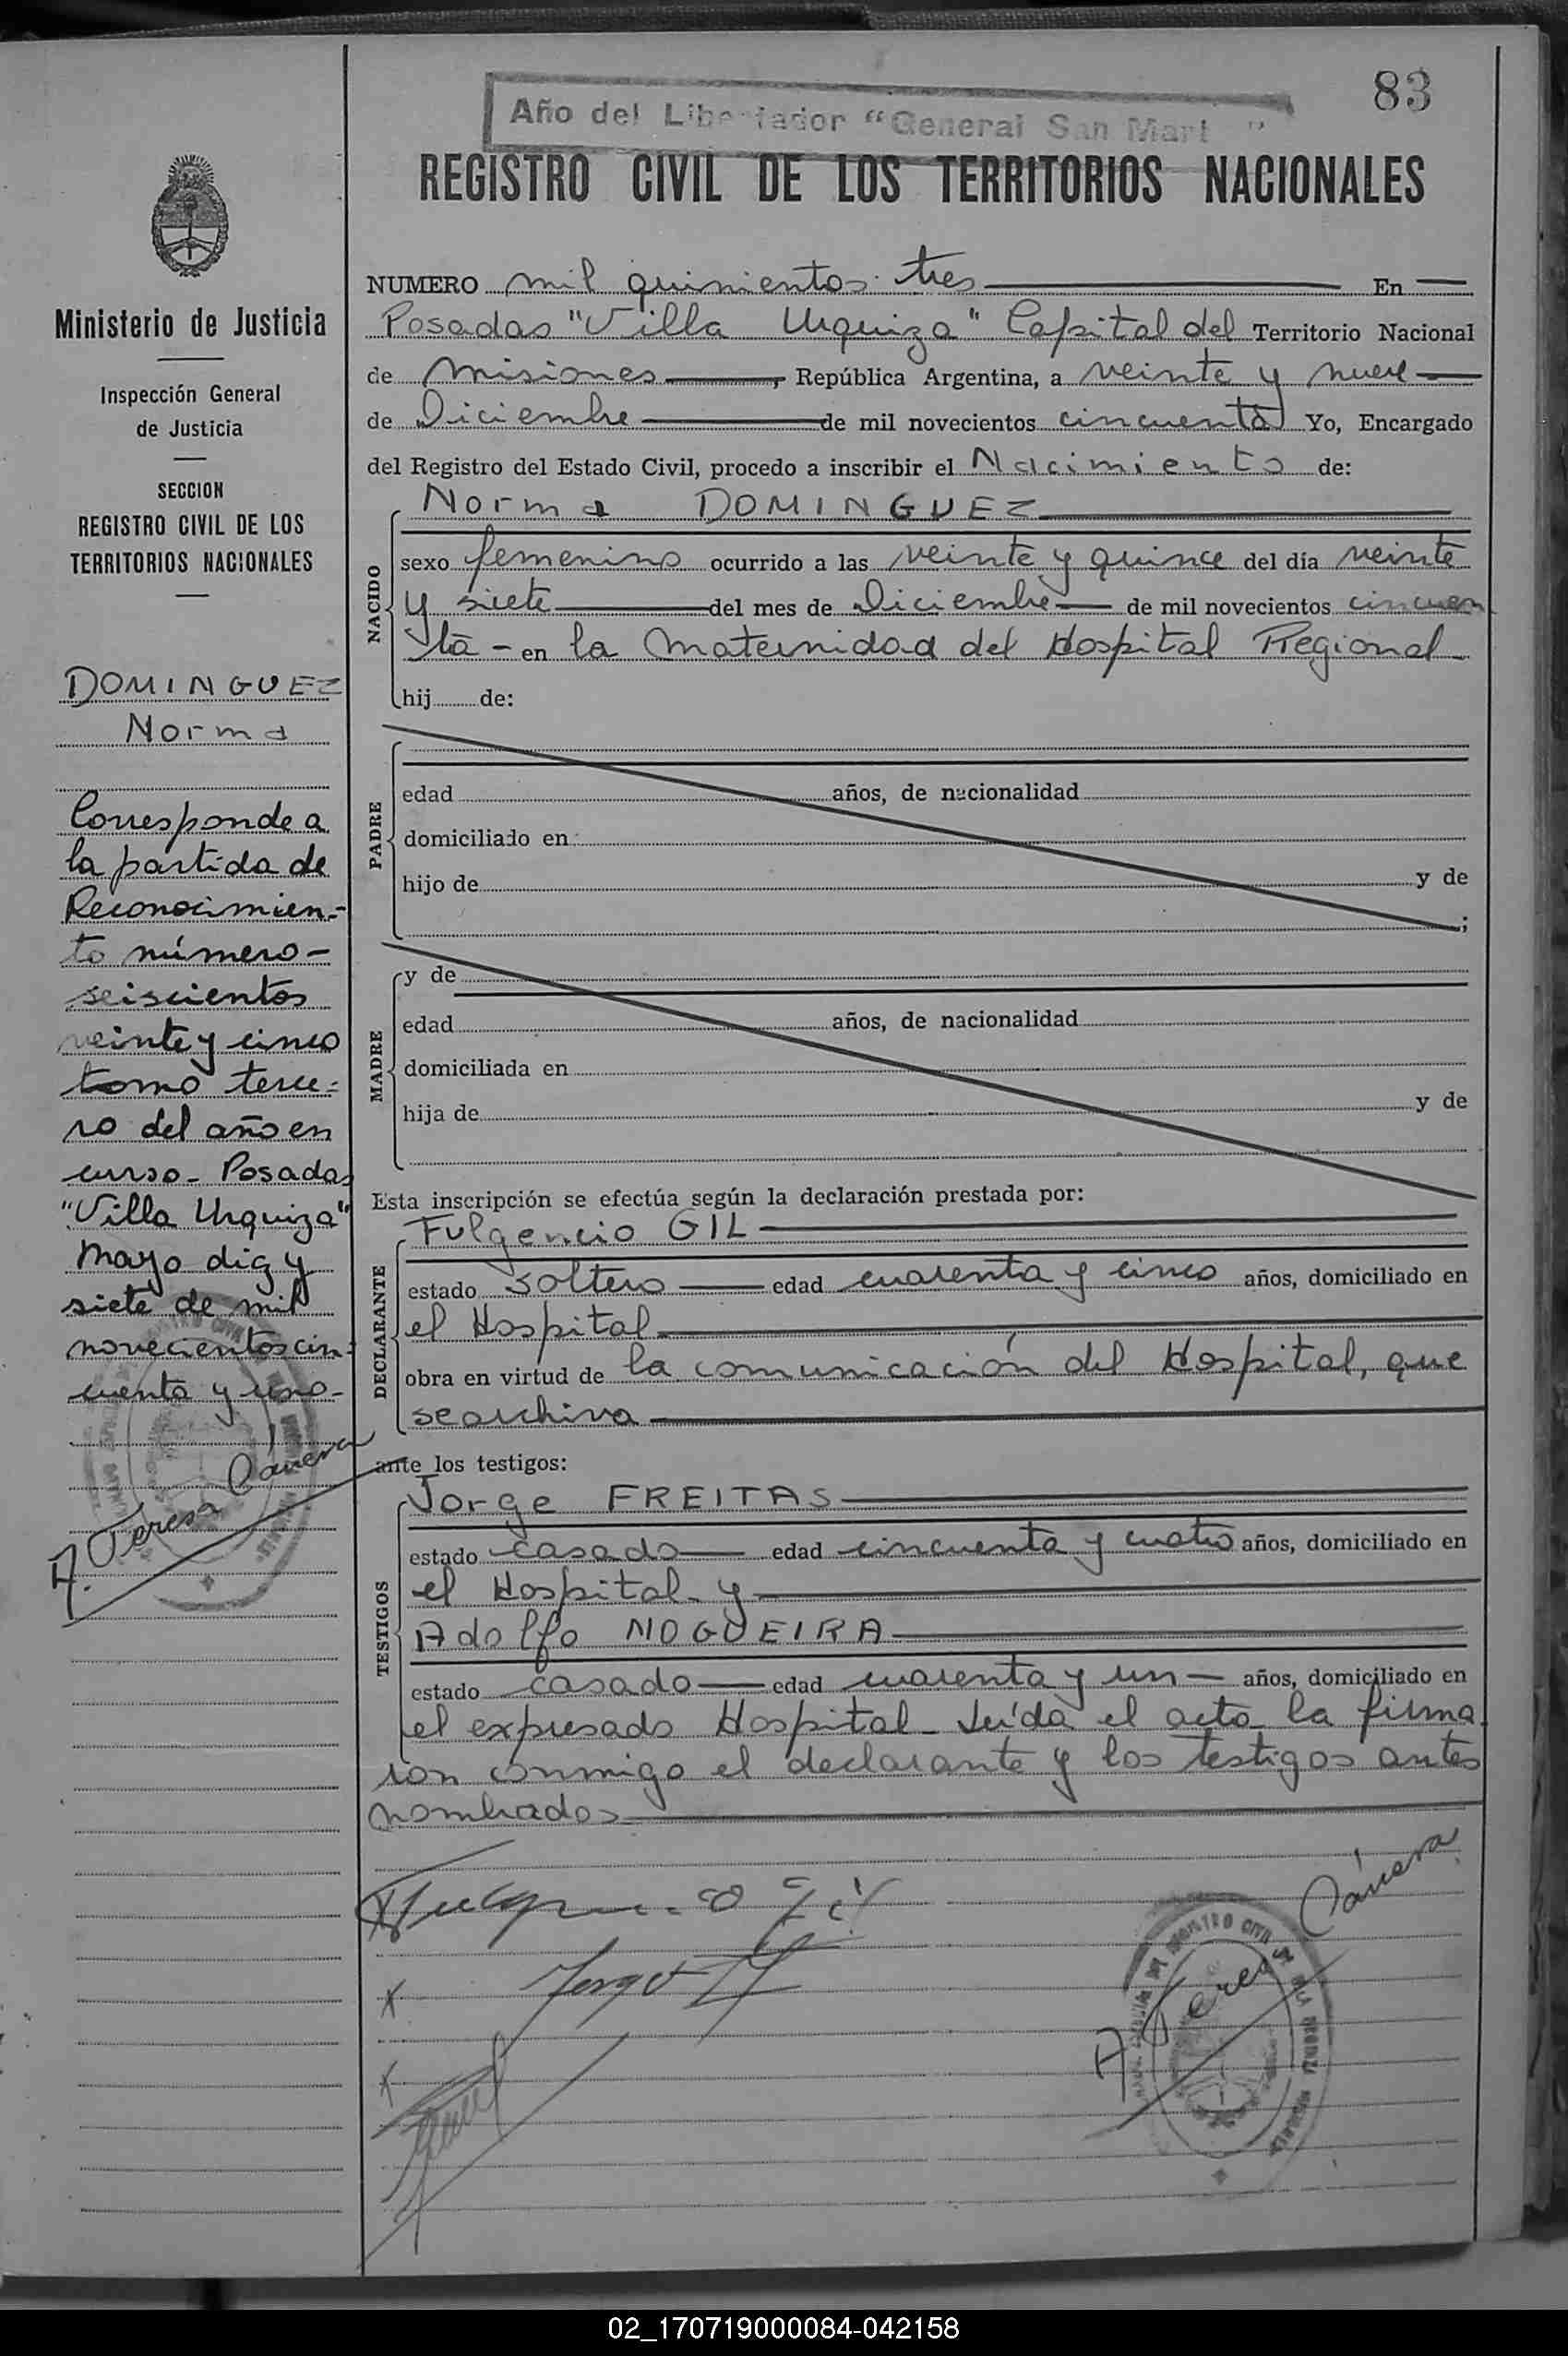 83
Año del Libertador "General San Mart "
REGISTRO CIVIL DE LOS TERRITORIOS NACIONALES
NUMERO mil quinientos tres En
Posadas "Villa Urquiza" Capital del Territorio Nacional
de Misiones, República Argentina, a veinte y nueve
de Diciembre de mil novecientos cincuenta Yo, Encargado
del Registro del Estado Civil, procedo a inscribir el Nacimiento de:
NACIDO
Norma DOMINGUEZ
sexo femenino ocurrido a las veinte y quince del día veinte
y siete del mes de Diciembre de mil novecientos cincuen
ta - en la Maternidad del Hospital Regional
hij de:
PADRE
edad años, de nacionalidad
domiciliado en
hijo de y de
;
MADRE
y de
edad años, de nacionalidad
domiciliada en
hija de y de
Esta inscripción se efectúa según la declaración prestada por:
DECLARANTE
Fulgencio GIL
estado soltero edad cuarenta y cinco años, domiciliado en
el Hospital
obra en virtud de la comunicación del Hospital, que
se archiva
ante los testigos:
TESTIGOS
Jorge FREITAS
estado casado edad cincuenta y cuatro años, domiciliado en
el Hospital y
Adolfo NOGUEIRA
estado casado edad cuarenta y un años, domiciliado en
el expresado Hospital - Leída el acta la firma
ron conmigo el declarante y los testigos antes
nombrados
Fulgencio Gil
Jorge
A Teresa Cánera
Ministerio de Justicia
Inspección General
de Justicia
SECCION
REGISTRO CIVIL DE LOS
TERRITORIOS NACIONALES
DOMINGUEZ
Norma
Corresponde a
la partida de
Reconocimien-
to número-
seiscientos
veinte y cinco
tomo terce-
ro del año en
curso - Posadas
"Villa Urquiza"
Mayo diez y
siete de mil
novecientos cin-
cuenta y uno-
A. Teresa Cánera
02_170719000084-042158